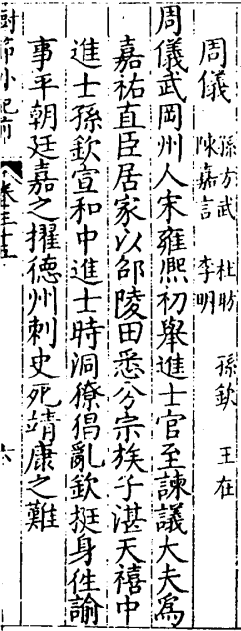 周儀 孫方武 杜昉 孫欽 王在
陳嘉言 李明
周儀武岡州人宋雍熙初舉進士官至諫議大夫爲
嘉祐直臣居家以邵陵田悉分宗族子湛天禧中
進士孫欽宣和中進士時洞獠猖亂欽挺身徃諭
事平朝廷嘉之擢德州刺史死靖康之難
卷三十五 六